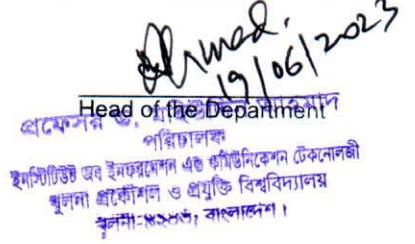 Ahmad.
19/06/2023
Head of the Department
প্রফেসর ড.
পরিচালক
ইনস্টিটিউট অব ইনফরমেশন এন্ড কমিউনিকেশন টেকনোলজী
খুলনা প্রকৌশল ও প্রযুক্তি বিশ্ববিদ্যালয়
খুলনা-৯২০৩, বাংলাদেশ।